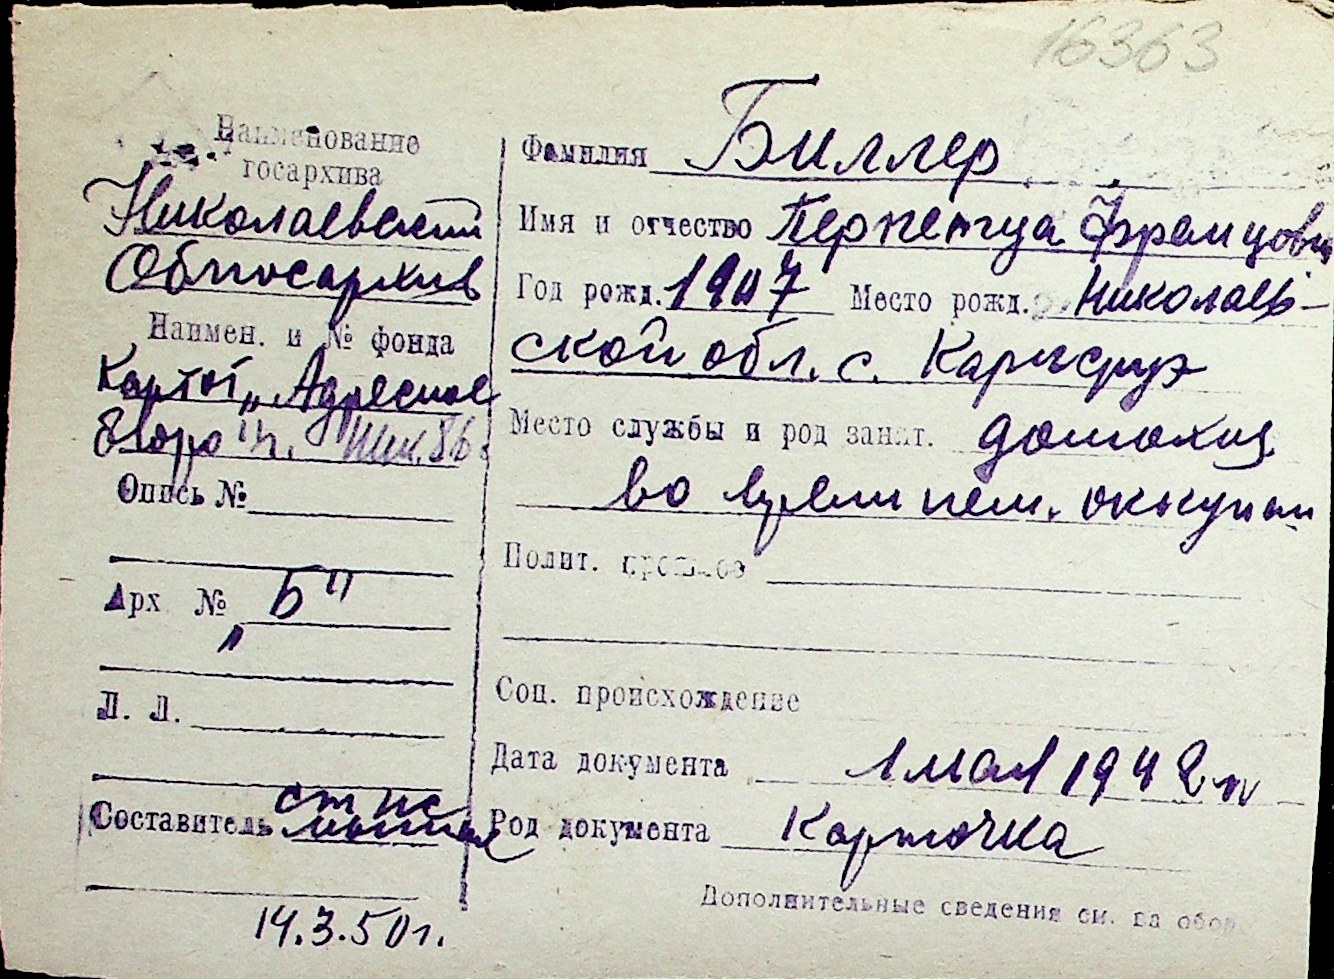 16363
Наименование
госархива
Николаевский
Облгосархив
Наимен. и № фонда
Картот. „Адресное
бюро" г. Ник.
Опись №
Арх № „Б"
Л. Л.
Составитель
14.3.50 г.
Фамилия Биллер
Имя и отчество Перпетуа Францовн
Год рожд. 1907 Место рожд. Николаев-
ской обл. с. Карлсруэ
Место службы и род занят. домохоз
во время нем. оккупац
Полит. прошлое
Соц. происхождение
Дата документа 1 мая 1942 г
Род документа Карточка
Дополнительные сведения см. на обор